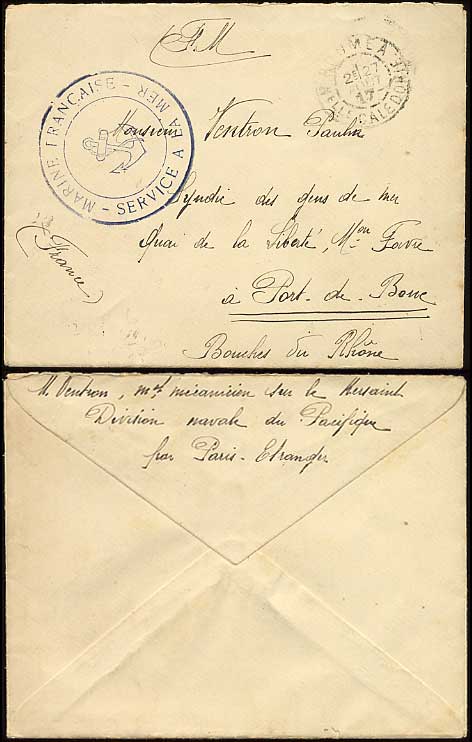 F.M
NOUMEA
27
17
NLLE CALEDONIE
MARINE FRANÇAISE - SERVICE A LA MER -
Monsieur Ventron Paulin
Syndic des gens de mer
Quai de la Liberté, Mon Favre
à Port-de-Bouc
Bouches du Rhône
(France)
M. Ventron, mt mécanicien sur le Kersaint
Division navale du Pacifique
par Paris-Etranger